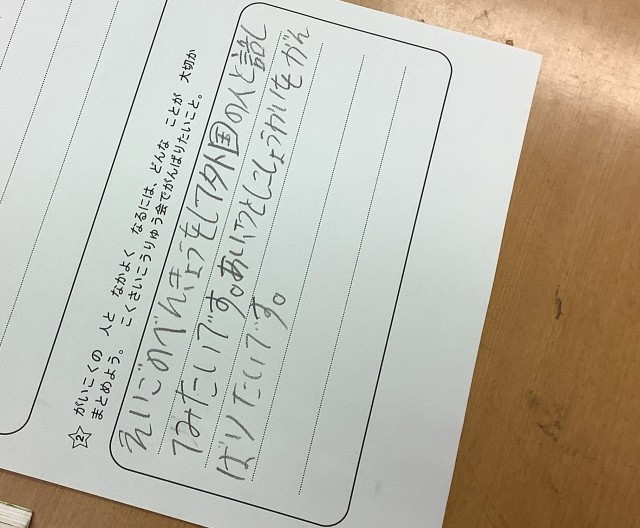 2 がいこくの 人と なかよく なるには、どんな ことが 大切か
まとめよう。 こくさいこうりゅう会でがんばりたいこと。
えいごのべんきょうをして外国の人と話し
てみたいです。あいさつとじこしょうかいをがん
ばりたいです。